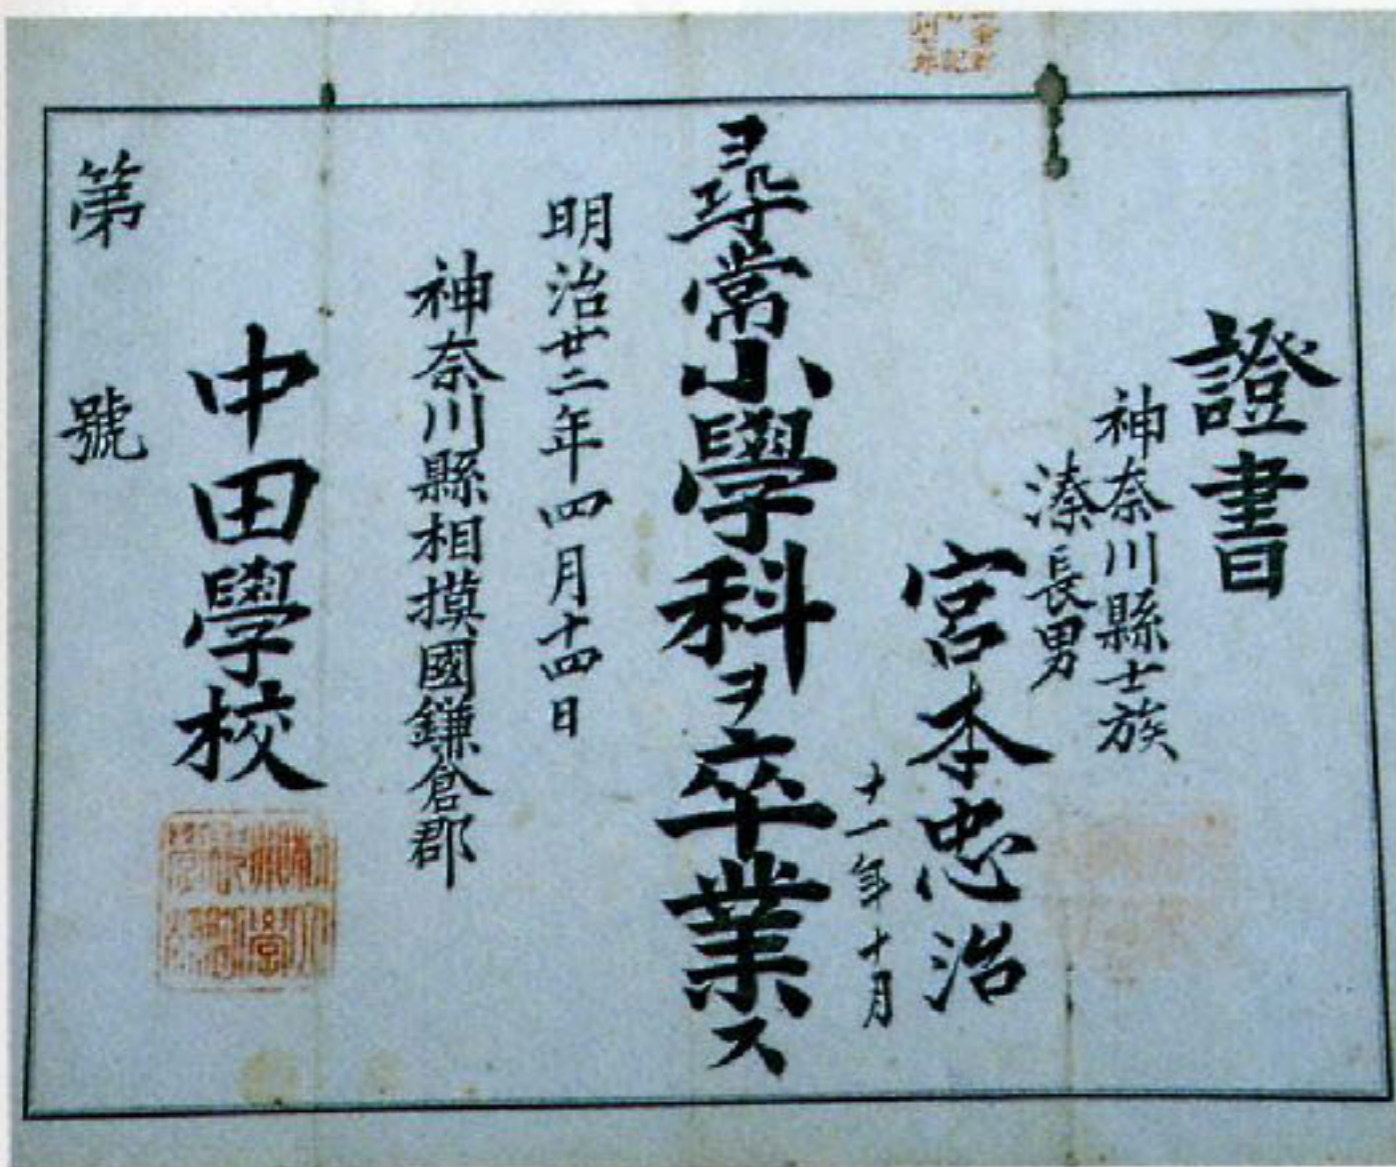 證書
神奈川縣士族
溱長男
宮本忠治
十一年十月
尋常小學科ヲ卒業ス
明治廿二年四月十四日
神奈川縣相摸國鎌倉郡
中田學校
第 號